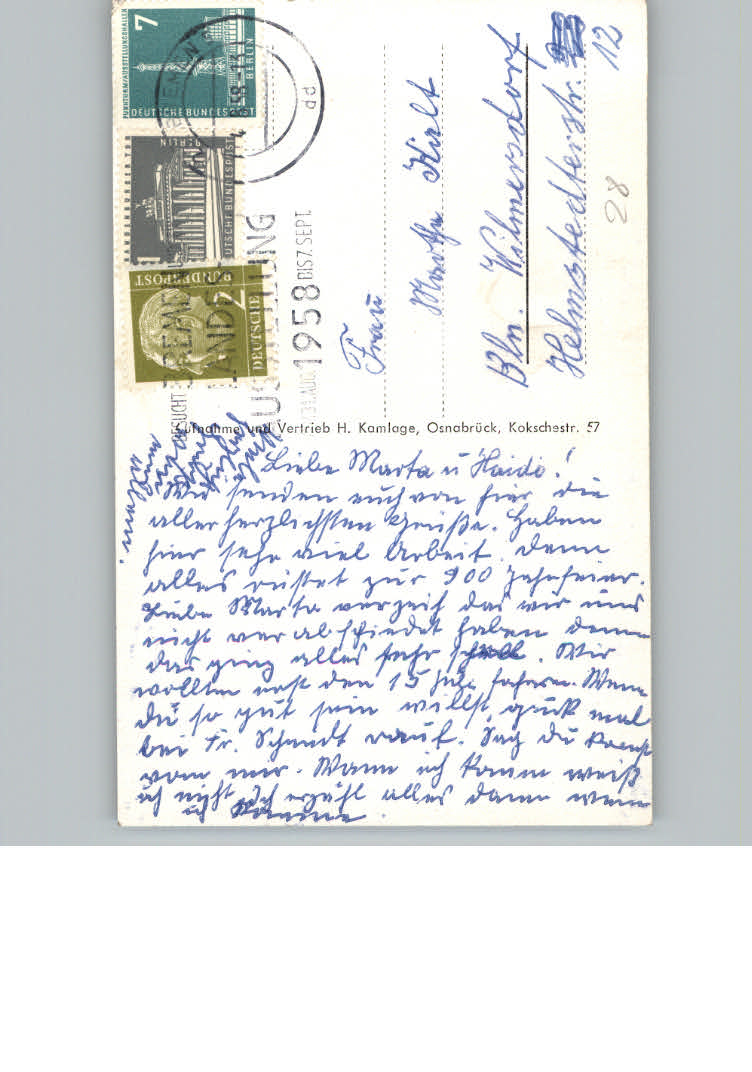 7
DEUTSCHE BUNDESPOST
BERLIN
FUNKTURM/AUSSTELLUNGSHALLEN
BRANDENBURGER TOR
BERLIN
DEUTSCHE BUNDESPOST
DEUTSCHE
BUNDESPOST
dd
1958 BIS 7. SEPT.
Frau
Martha
Bln. Wilmersdorf
Helmstedterstr.
12
28
Aufnahme und Vertrieb H. Kamlage, Osnabrück, Kokschestr. 57
Liebe Marta u Haidi!
Wir senden euch von hier die
allerherzlichsten Grüße. Haben
hier sehr viel Arbeit. Denn
alles rüstet zur 900 Jahrfeier.
Liebe Marta verzeih das wir uns
nicht verabschiedet haben denn
das ging alles sehr schnell. Wir
wollten erst den 15 Juli fahren. Wenn
du so gut sein willst, guck mal
bei Fr. Schmidt rauf. Sag du kommst
von mir. Wann ich komm weiß
ich nicht, ich erzähl alles dann wenn
ich komme.